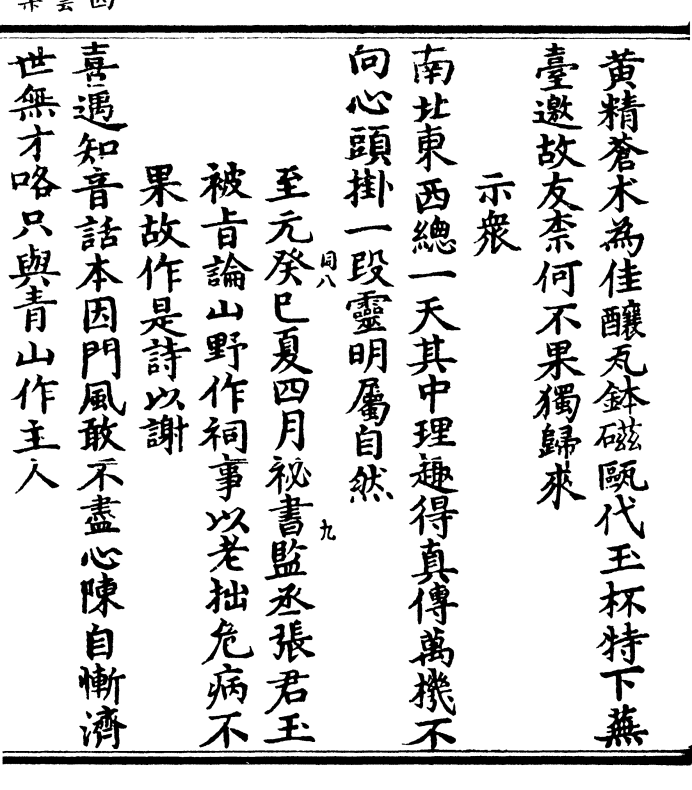 黄精蒼朮為佳釀瓦鉢磁甌代玉杯特下蕪
臺邀故友柰何不果獨歸來
示衆
南北東西總一天其中理趣得真傳萬機不
向心頭掛一段靈明屬自然
至元癸巳夏四月祕書監丞張君玉
同八
九
被旨論山野作祠事以老拙危病不
果故作是詩以謝
喜遇知音話本因門風敢不盡心陳自慚濟
世無才咯只與青山作主人